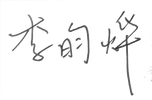 李昀烨